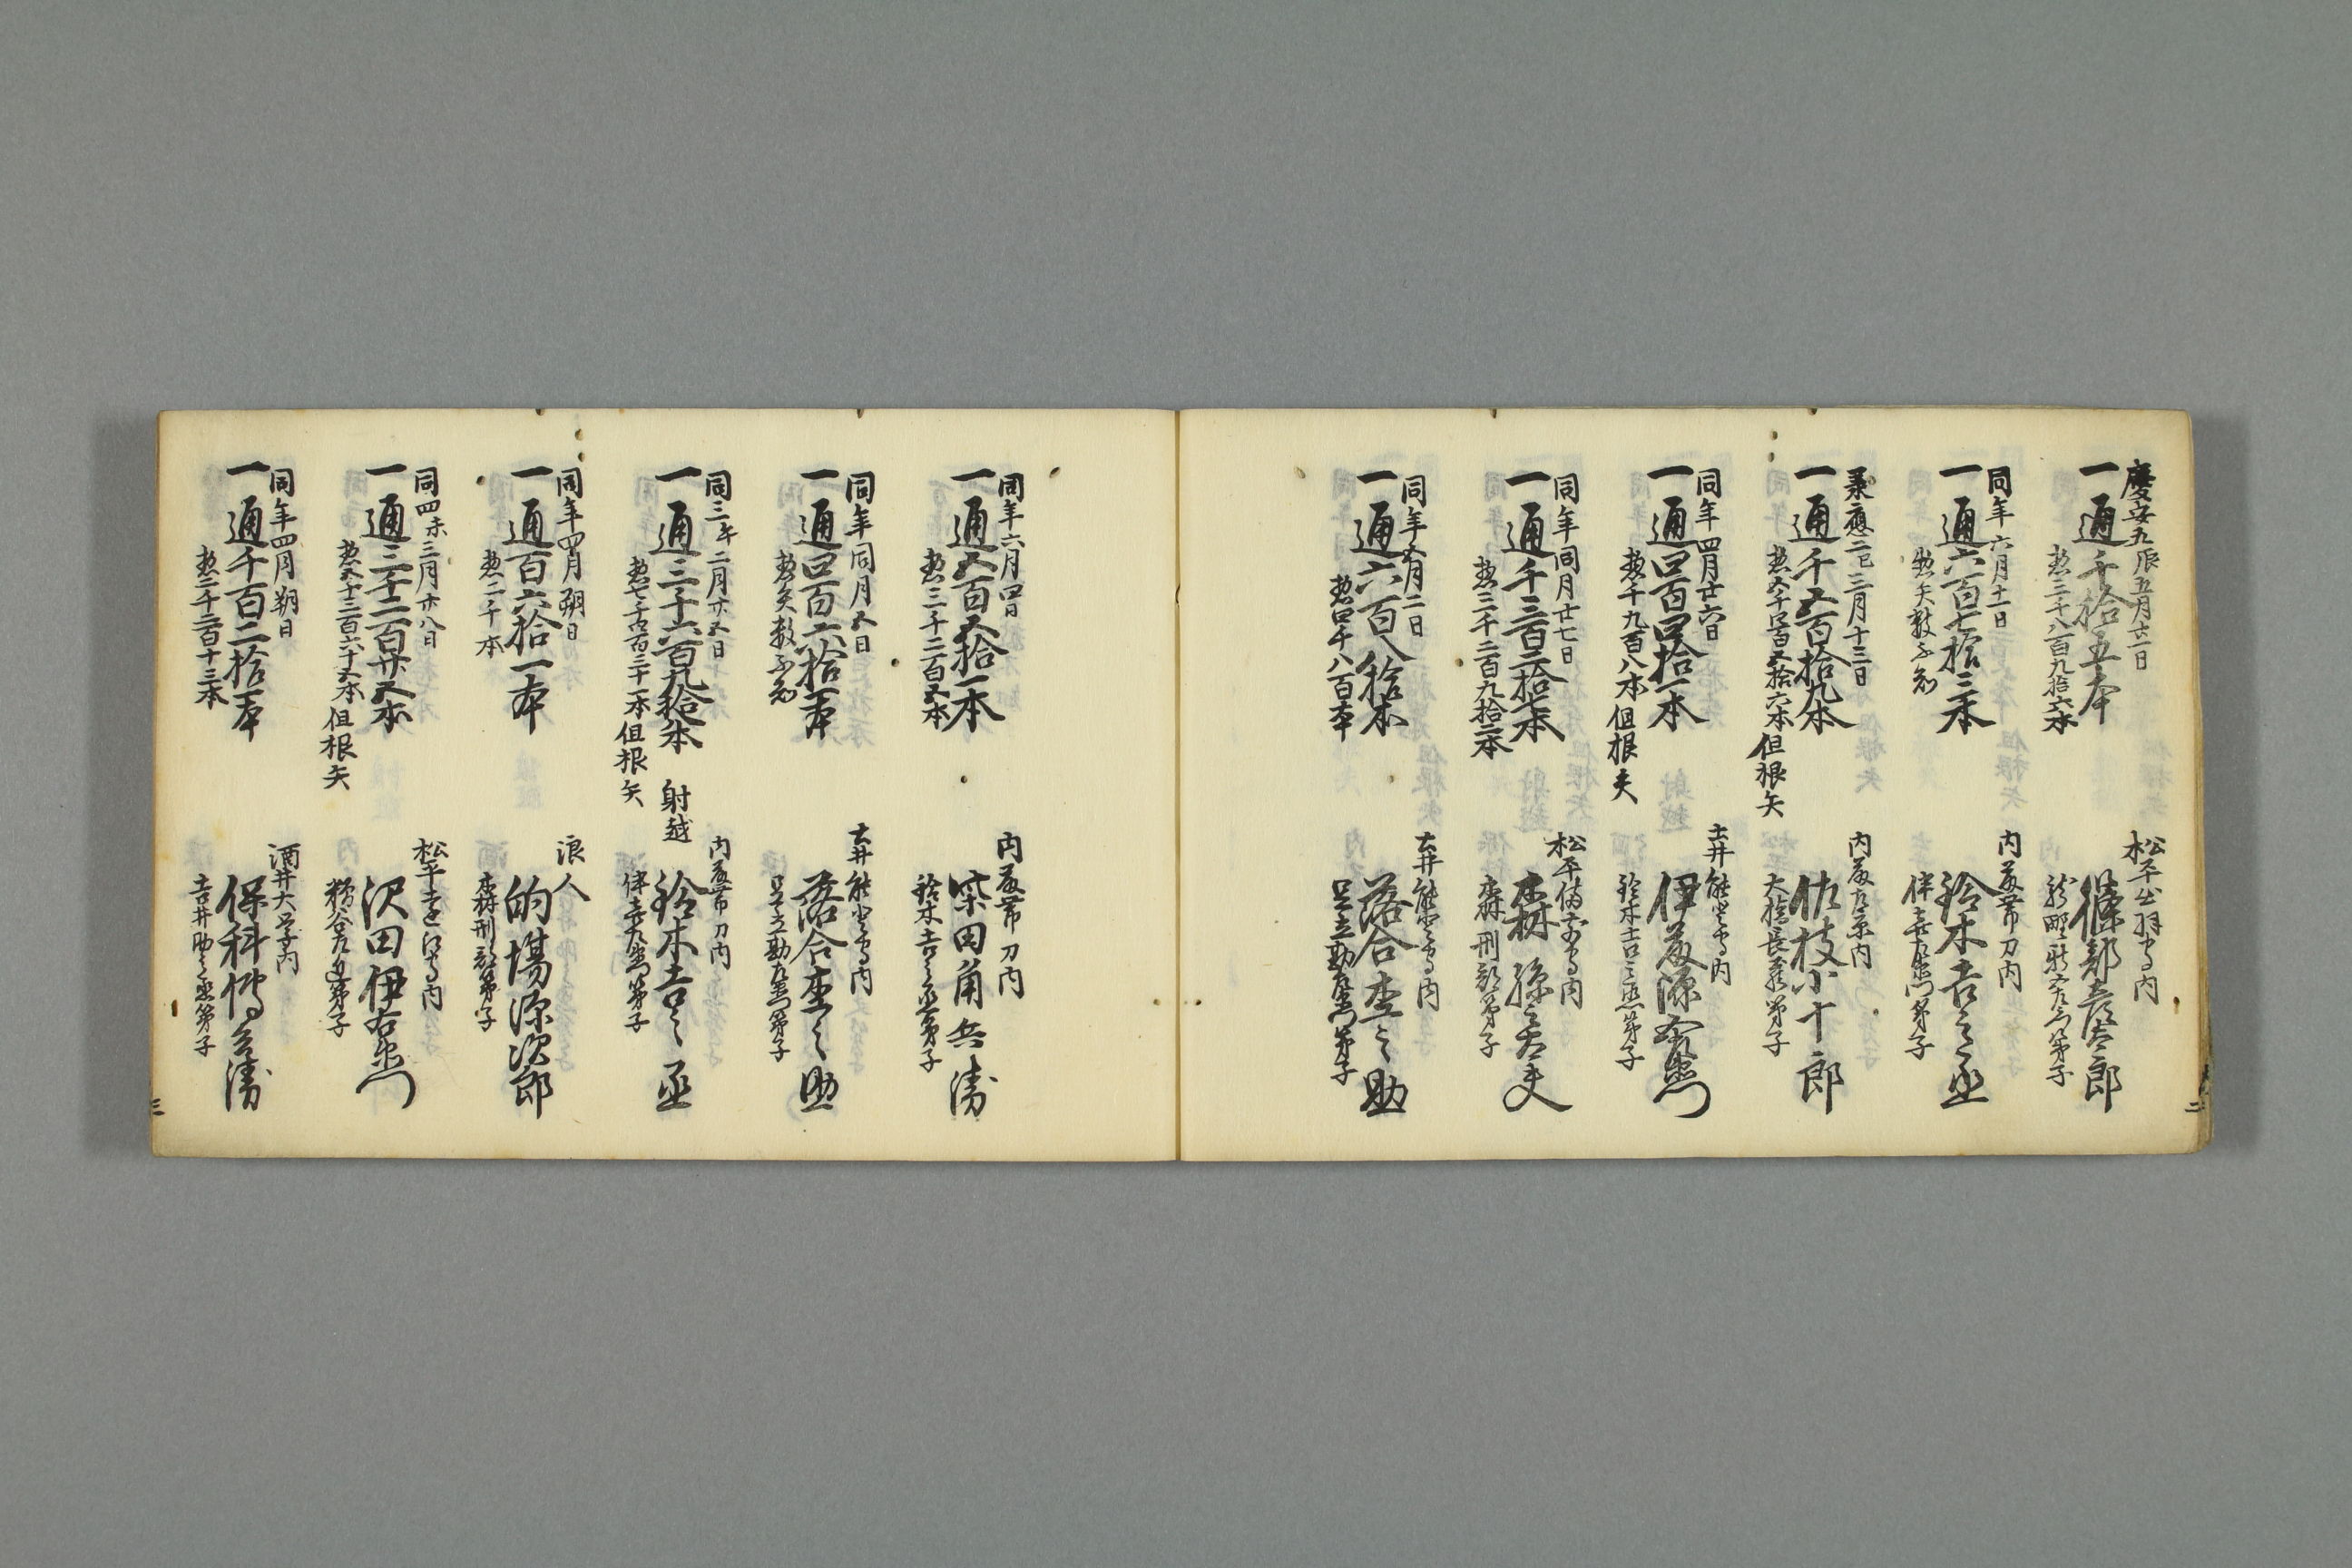 慶安五辰五月廿一日
一通千拾五本
惣三千八百九拾六本
松平出羽守内
五郎
弟子
同年六月十一日
一通六百七拾三本
惣矢数不知
内藤帯刀内
鈴木吉之丞
伴喜左衛門弟子
承應二巳三月十三日
一通千五百拾九本
惣五千四百五拾六本但根矢
内藤左京内
佐枝小十郎
大橋長蔵弟子
同年四月廿六日
一通四百四拾一本
惣千九百八本但根矢
土井能登守内
伊藤源右衛門
鈴木吉之丞弟子
同年同月廿七日
一通千三百六拾七本
惣三千二百九拾二本
松平備前守内
森孫之大夫
森刑部弟子
同年五月二日
一通六百八拾本
惣四千八百本
土井能登守内
落合杢之助
足立勘左衛門弟子
同年六月四日
一通五百五拾一本
惣三千二百五本
内藤帯刀内
柴田角兵衛
鈴木吉之丞弟子
同年同月五日
一通四百六拾一本
惣矢数不知
土井能登守内
落合杢之助
足立勘左衛門弟子
同三午二月廿五日
一通三千六百九拾本 射越
惣七千四百三十一本但根矢
内藤帯刀内
鈴木吉之丞
伴喜左衛門弟子
同年四月朔日
一通百六拾一本
惣二千本
浪人
的場源次郎
森刑部弟子
同四未三月廿八日
一通三千二百廿五本
惣五千三百六十五本但根矢
松平
沢田伊右衛門
糟谷左近弟子
同年四月朔日
一通千百二拾一本
惣二千二百十三本
酒井大学内
保科傳兵衛
吉井助之丞弟子
二
三